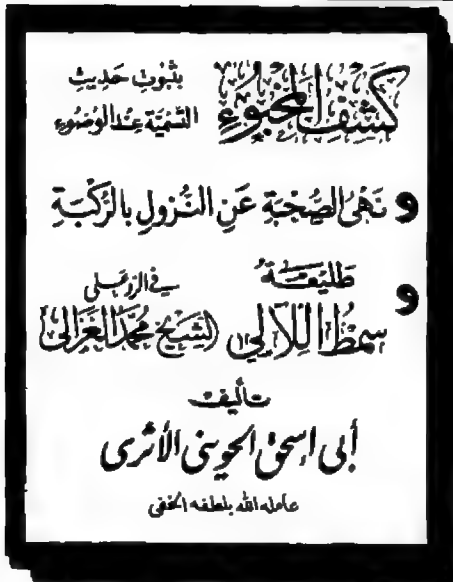 كَشْفُ المَخْبُوءِ
بِثُبُوتِ حَدِيثِ
التَّسْمِيَةِ عِنْدَ الوُضُوءِ
و نَهْىُ الصُّحْبَةِ عَنِ النُّزُولِ بِالرُّكْبَةِ
و طَلِيعَةُ
سِمْطُ اللآلِي
في الرد على
الشيخ محمد الغزالي
تأليف
أبى إسحق الحوينى الأثرى
عامله الله بلطفه الخفى